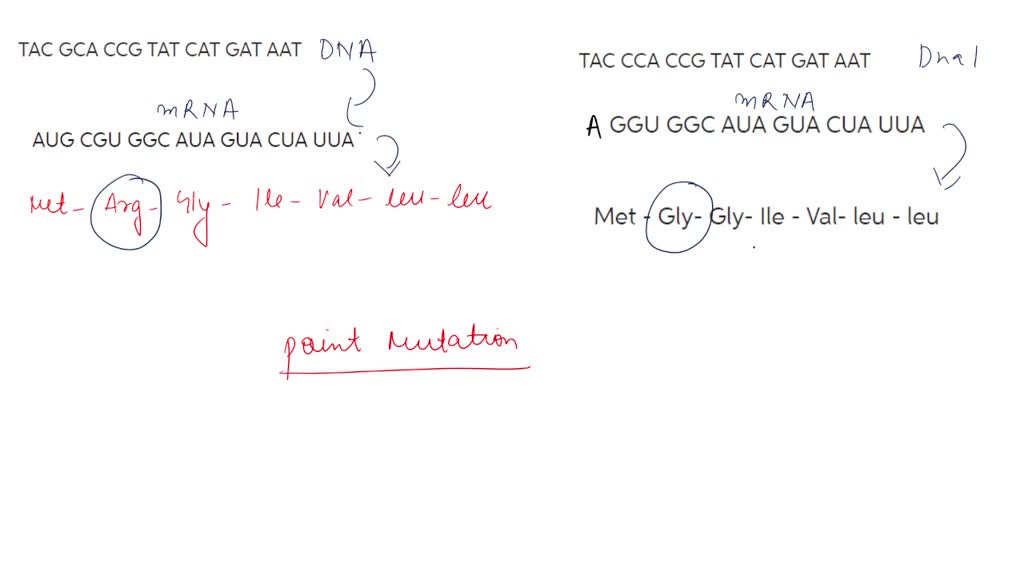 TAC GCA CCG TAT CAT GAT AAT DNA
mRNA
AUG CGU GGC AUA GUA CUA UUA
Met - Arg - Gly - Ile - Val - leu - leu
TAC CCA CCG TAT CAT GAT AAT Dna1
mRNA
A GGU GGC AUA GUA CUA UUA
Met - Gly- Gly- Ile - Val- leu - leu
point Mutation